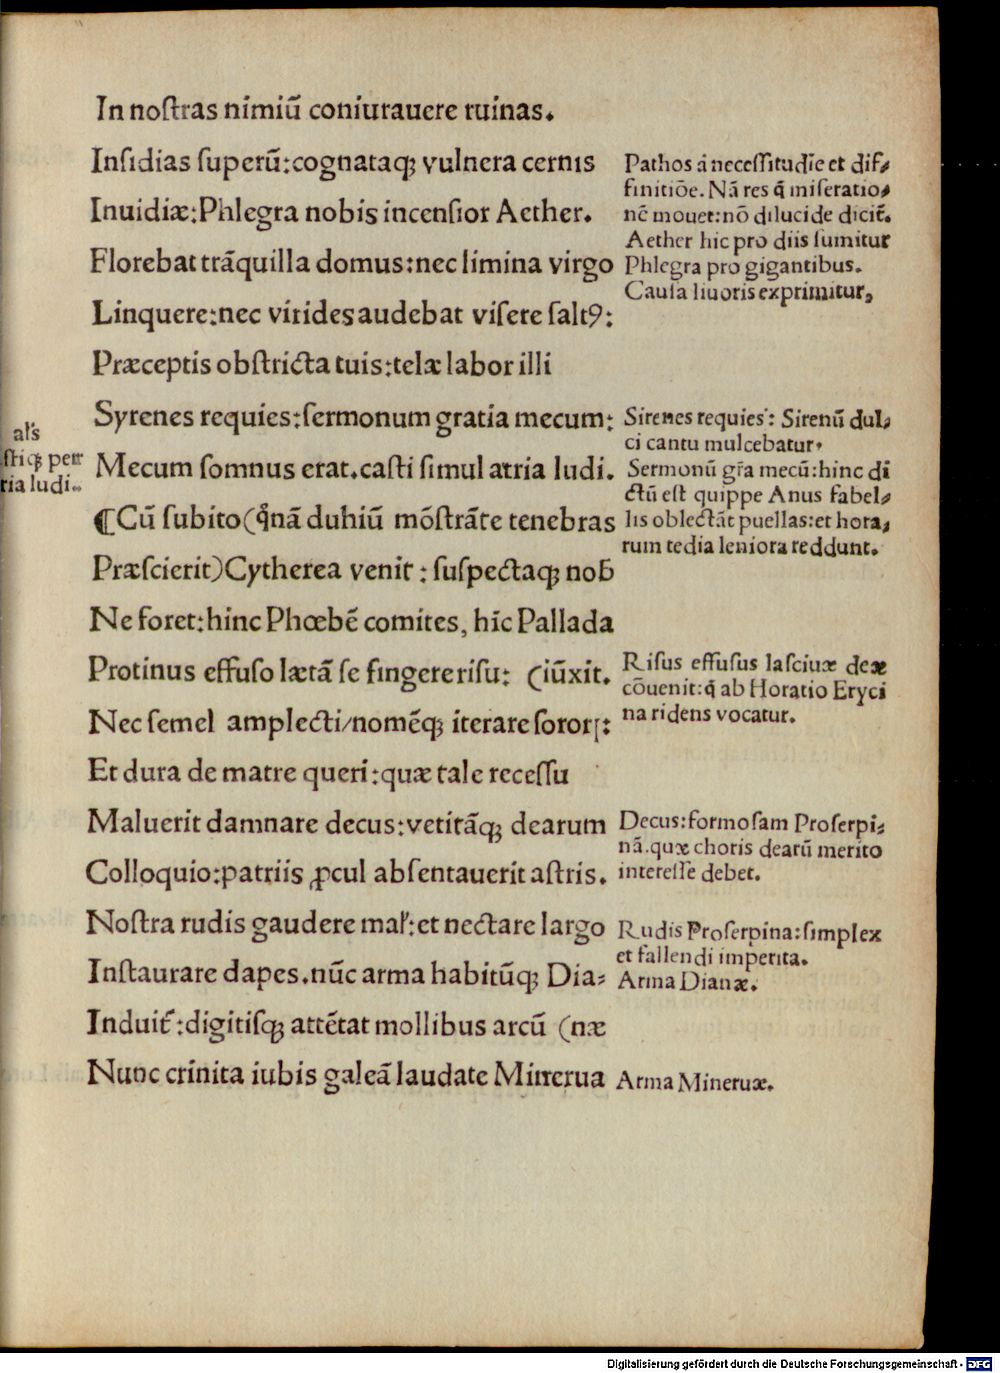 In noſtras nimiũ coniurauere ruinas.
Inſidias ſuperũ:cognataqꝫ vulnera cernis
Inuidiæ:Phlegra nobis incenſior Aether.
Florebat trãquilla domus:nec limina virgo
Linquere:nec virides audebat viſere ſaltꝰ:
Præceptis obſtricta tuis:telæ labor illi
Syrenes requies:ſermonum gratia mecum:
Mecum ſomnus erat.caſti ſimul atria ludi.
¶Cũ ſubito(q̃nã duhiũ mõſtrãte tenebras
Præſcierit)Cytherea venit : ſuſpectaqꝫ nob̃
Ne foret:hinc Phœbẽ comites, hĩc Pallada
Protinus effuſo lætã ſe fingere riſu: (iũxit.
Nec ſemel amplecti/nomẽqꝫ iterare ſoror[:
Et dura de matre queri:quæ tale receſſu
Maluerit damnare decus:vetitãqꝫ dearum
Colloquio:patriis ꝓcul abſentauerit aſtris.
Noſtra rudis gaudere mal̃:et nectare largo
Inſtaurare dapes.nũc arma habitũqꝫ Dia⸗
Induit̃:digitiſqꝫ attẽtat mollibus arcũ (næ
Nunc crinita iubis galeã laudate Minerua
al̃s
ſtiqꝫ petr
ria ludi..
Pathos á neceſſitudĩe et dif⸗
finitiõe. Nã res q̃ miſeratio⸗
nẽ mouet:nõ dilucide dicit̃.
Aether hic pro diis ſumitur
Phlegra pro gigantibus.
Cauſa liuoris exprimitur,
Sirenes requies : Sirenũ dul⸗
ci cantu mulcebatur.
Sermonũ gr̃a mecũ:hinc di
ctũ eſt quippe Anus fabel⸗
lis oblectãt puellas:et hora⸗
rum tedia leniora reddunt.
Riſus effuſus laſciuæ deæ
cõuenit:q̃ ab Horatio Eryci
na ridens vocatur.
Decus:formoſam Proſerpi⸗
nã.quæ choris dearũ merito
intereſſe debet.
Rudis Proſerpina:ſimplex
et fallendi imperita.
Arma Dianæ.
Arma Mineruæ.
Digitalisierung gefördert durch die Deutsche Forschungsgemeinschaft - DFG